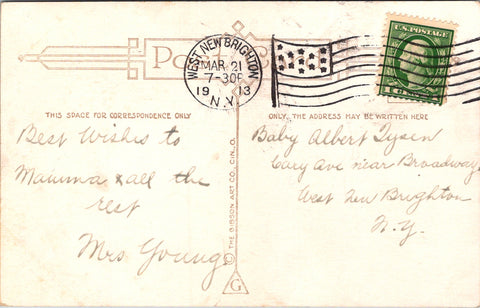 Post Card
WEST NEW BRIGHTON
MAR. 21
7-30P
1913
N.Y.
U.S. POSTAGE
THIS SPACE FOR CORRESPONDENCE ONLY
ONLY THE ADDRESS MAY BE WRITTEN HERE
Best Wishes to
Mamma & all the
rest
Mrs Young
THE GIBSON ART CO., CIN., O.
G
Baby Albert Tysen
Cary Ave near Broadway
West New Brighton
N.Y.